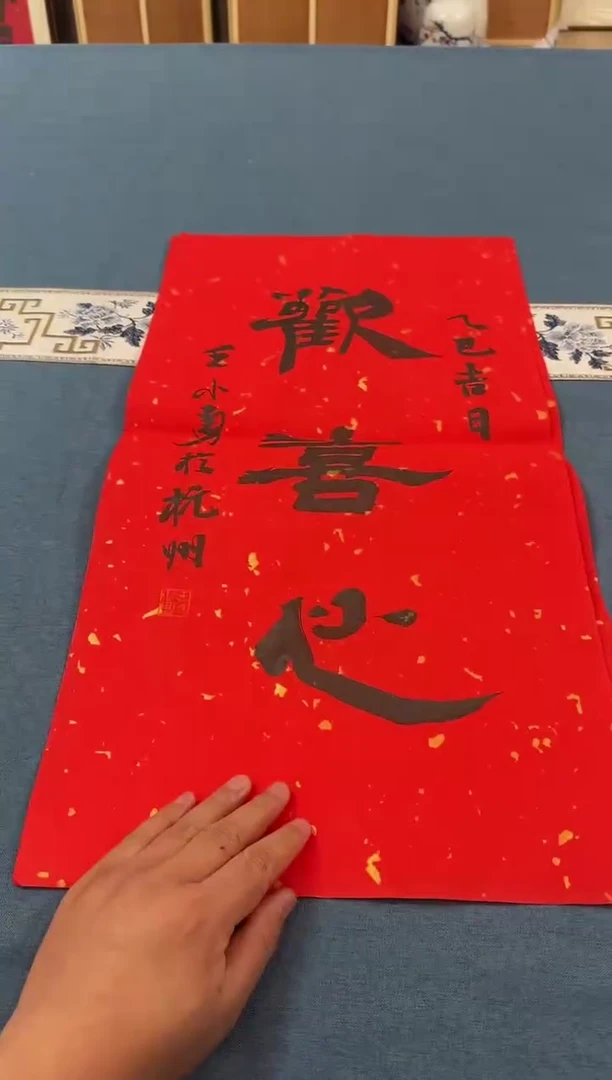 乙巳吉日
歡喜心
王小勇於杭州